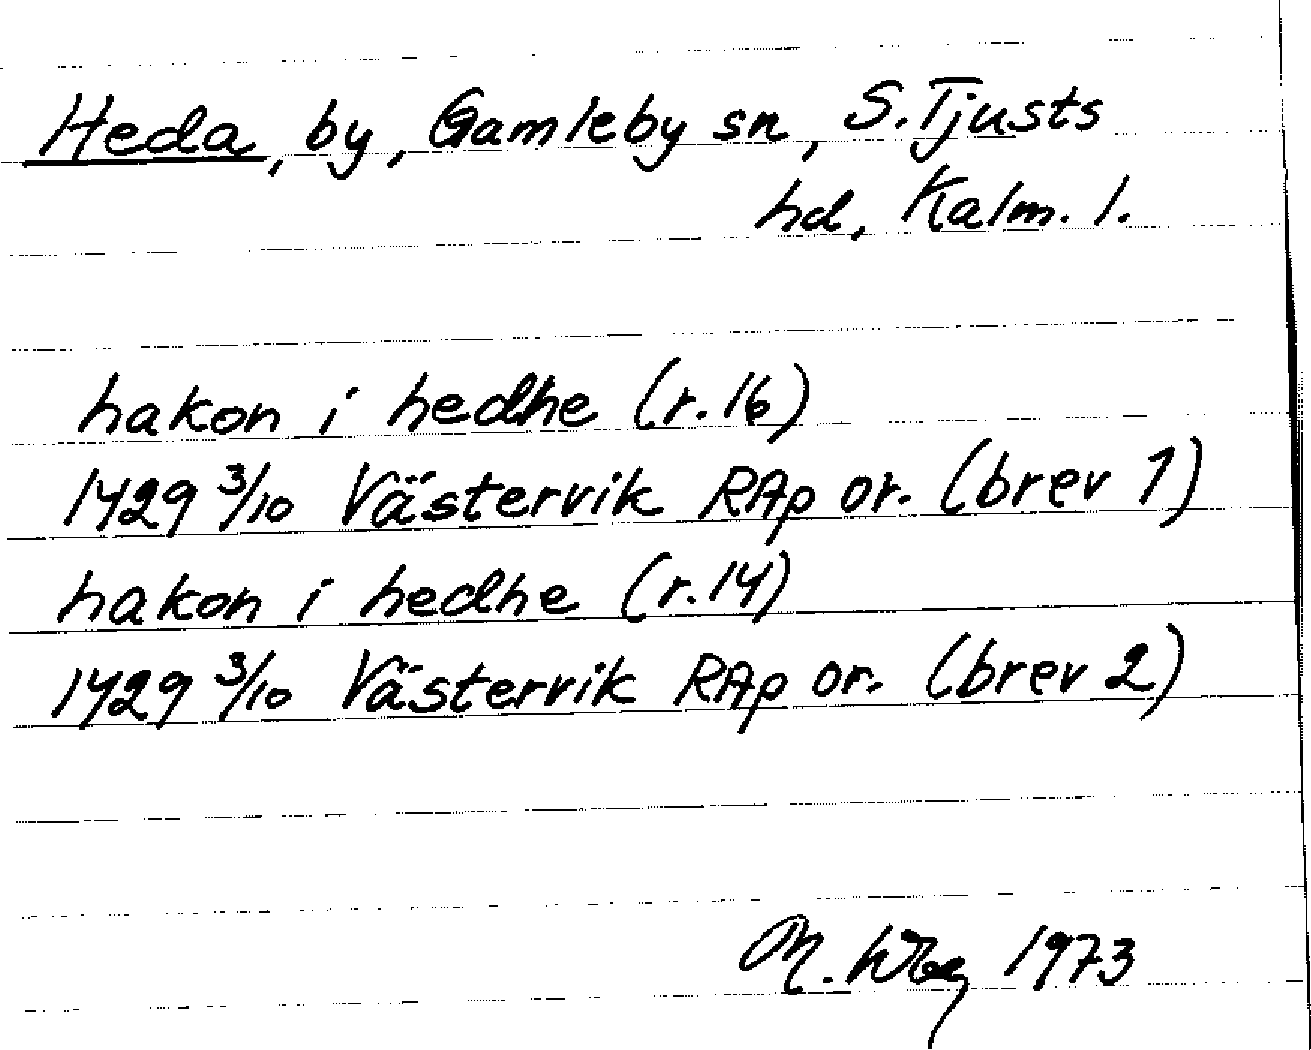 Heda, by, Gamleby sn, S. Tjusts
hd, Kalm. l.
hakon i hedhe (r. 16)
1429 3/10 Västervik RAp or. (brev 1)
hakon i hedhe (r. 14)
1429 3/10 Västervik RAp or. (brev 2)
M. 1973